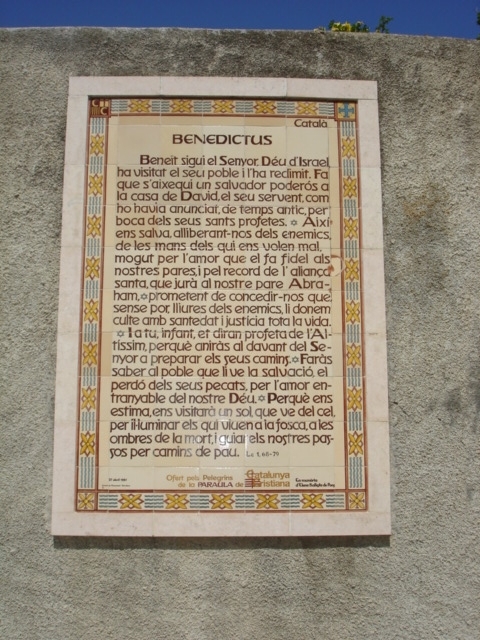 Català
BENEDICTUS
Beneit sigui el Senyor, Déu d'Israel,
ha visitat el seu poble i l'ha redimit. Fa
que s'aixequi un salvador poderós a
la casa de David, el seu servent, com
ho havia anunciat, de temps antic, per
boca dels seus sants profetes. * Així
ens salva, alliberant-nos dels enemics,
de les mans dels qui ens volen mal,
mogut per l'amor que el fa fidel als
nostres pares, i pel record de l'aliança
santa, que jurà al nostre pare Abra-
ham, * prometent de concedir-nos que
sense por, lliures dels enemics, li donem
culte amb santedat i justícia tota la vida.
* I a tu, infant, et diran profeta de l'Al-
tíssim, perquè aniràs al davant del Se-
nyor a preparar els seus camins. * Faràs
saber al poble que li ve la salvació, el
perdó dels seus pecats, per l'amor en-
tranyable del nostre Déu. * Perquè ens
estima, ens visitarà un sol que ve del cel,
per il·luminar els qui viuen a la fosca, a les
ombres de la mort, i guiar els nostres pas-
sos per camins de pau. Lc 1, 68-79
Ofert pels Pelegrins
de la PARAULA de
Catalunya
Cristiana